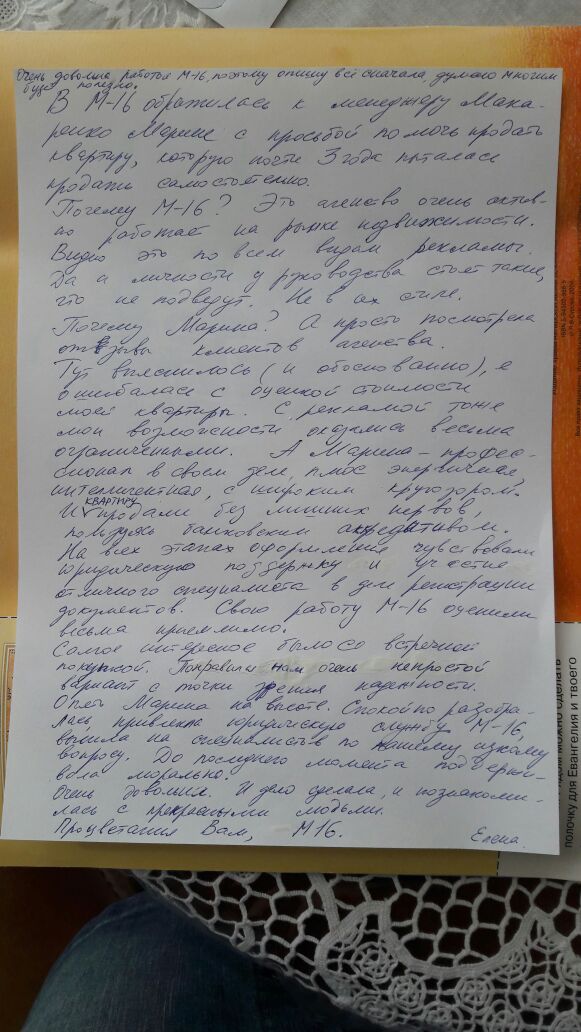 Очень довольна работой М-16, поэтому опишу всё сначала, думаю многим
будет полезно.
В М-16 обратилась к менеджеру Мака-
ренко Марине с просьбой помочь продать
квартиру, которую почти 3 года пыталась
продать самостоятельно.
Почему М-16? Это агенство очень актив-
но работает на рынке недвижимости.
Видно это по всем видам рекламы.
Да и личности у руководства стоят такие,
что не подведут. Не в их стиле.
Почему Марина? А просто посмотрела
отзывы клиентов агенства.
Тут выяснилось (и обоснованно), я
ошибалась с оценкой стоимости
моей квартиры. С рекламой тоже
мои возможности оказались весьма
ограниченными. А Марина - профес-
сионал в своем деле, плюс энергичная,
интеллигентная, с широким кругозором.
И квартиру продали без лишних нервов,
пользуясь банковским акредитивом.
На всех этапах оформления чувствовали
юридическую поддержку и участие
отличного специалиста в деле регистрации
документов. Свою работу М-16 оценили
весьма приемлимо.
Самое интересное было со встречной
покупкой. Понравился нам очень непростой
вариант с точки зрения надежности.
Опять Марина на высоте. Спокойно разобра-
лась, привлекла юридическую службу М-16,
вышла на специалистов по нашему узкому
вопросу. До последнего момента поддержи-
вала морально.
Очень довольна. И дело сделала, и познакоми-
лась с прекрасными людьми.
Процветания Вам, М16.
Елена.
полочку для Евангелия и твоего